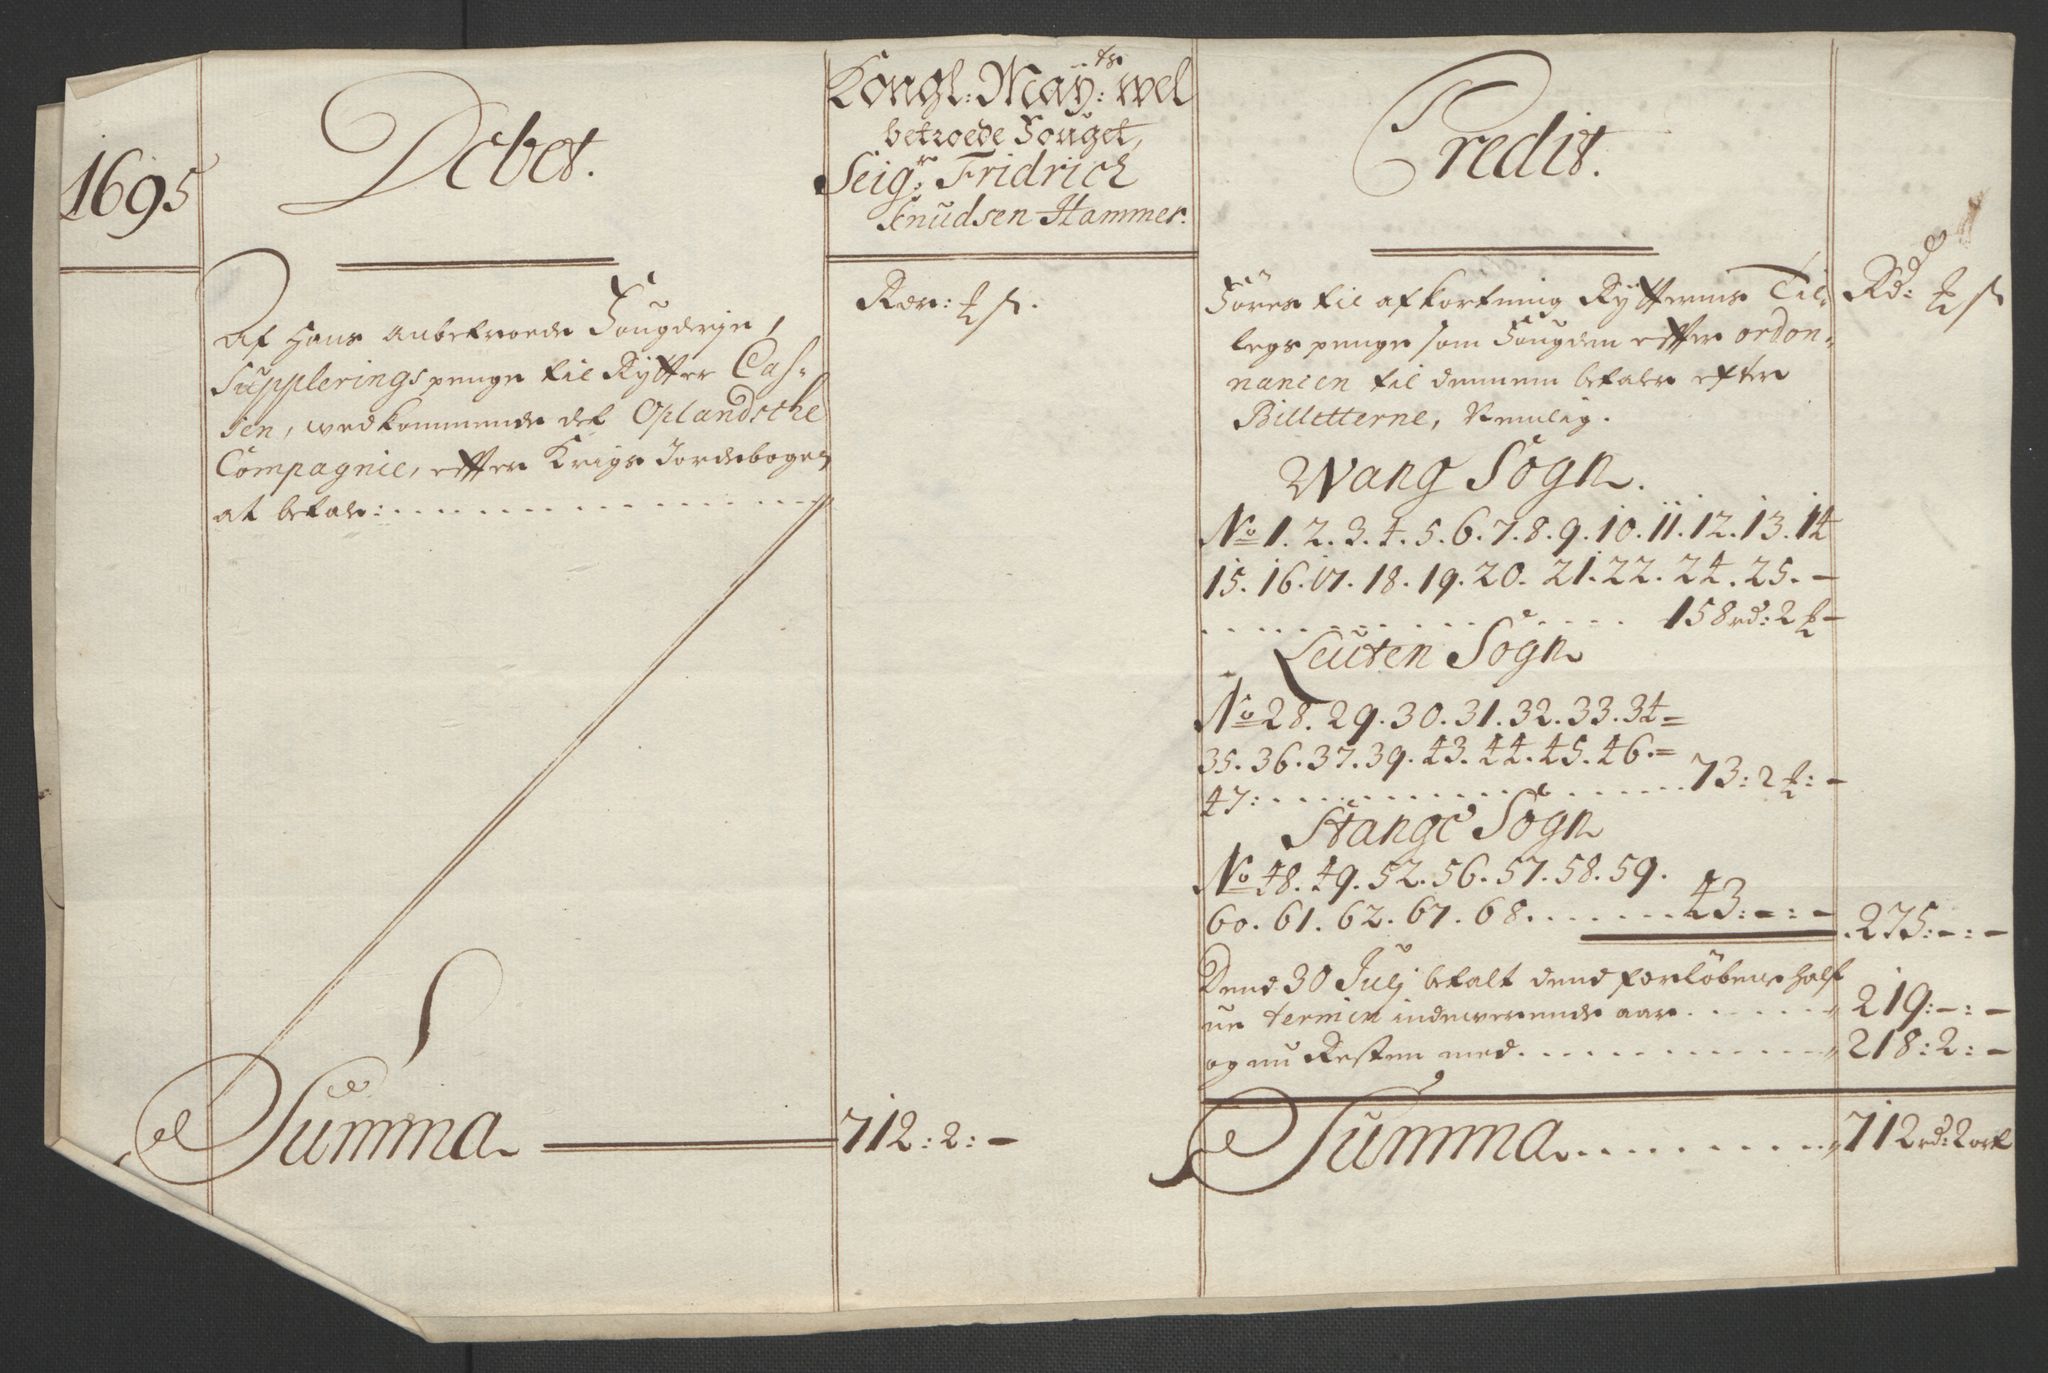 1695
Debet.
Kongl: May:ts wel
betroede Fouget,
Seig:r Fridrich
Knudsen Hammer.
Rdr: ß.
Af Hans anbetroede Fougderje,
Supplerings penge til Rytter Cas-
sen, wedkommende det Oplandsche
Compagnie, effter Krigs Jordebogen
at betale:
Summa 712: 2: -
Credit.
Rd:
Föres til afkortning Rytterns Til-
legs penge som Fougden effter ordon-
nancen til dennem betaler efter
Billetterne, Nemlig.
Wang Sogn.
No 1. 2. 3. 4. 5. 6. 7. 8. 9. 10. 11. 12. 13. 14
15. 16. 17. 18. 19. 20. 21. 22. 24. 25. -
158 rd: 2 -
Leuten Sogn
No 28. 29. 30. 31. 32. 33. 34 =
35. 36. 37. 39. 43. 44. 45. 46. =
47: 73: 2 : -
Stange Sogn
No 48. 49. 52. 56. 57. 58. 59.
60. 61. 62. 67. 68. 43: -: - 275: -: -
Dend 30 Julj betalt dend forlöbene half
ue termin indewerende aar 219: -: -
og nu Resten med 218: 2: -
Summa 712 rd: 2 ort